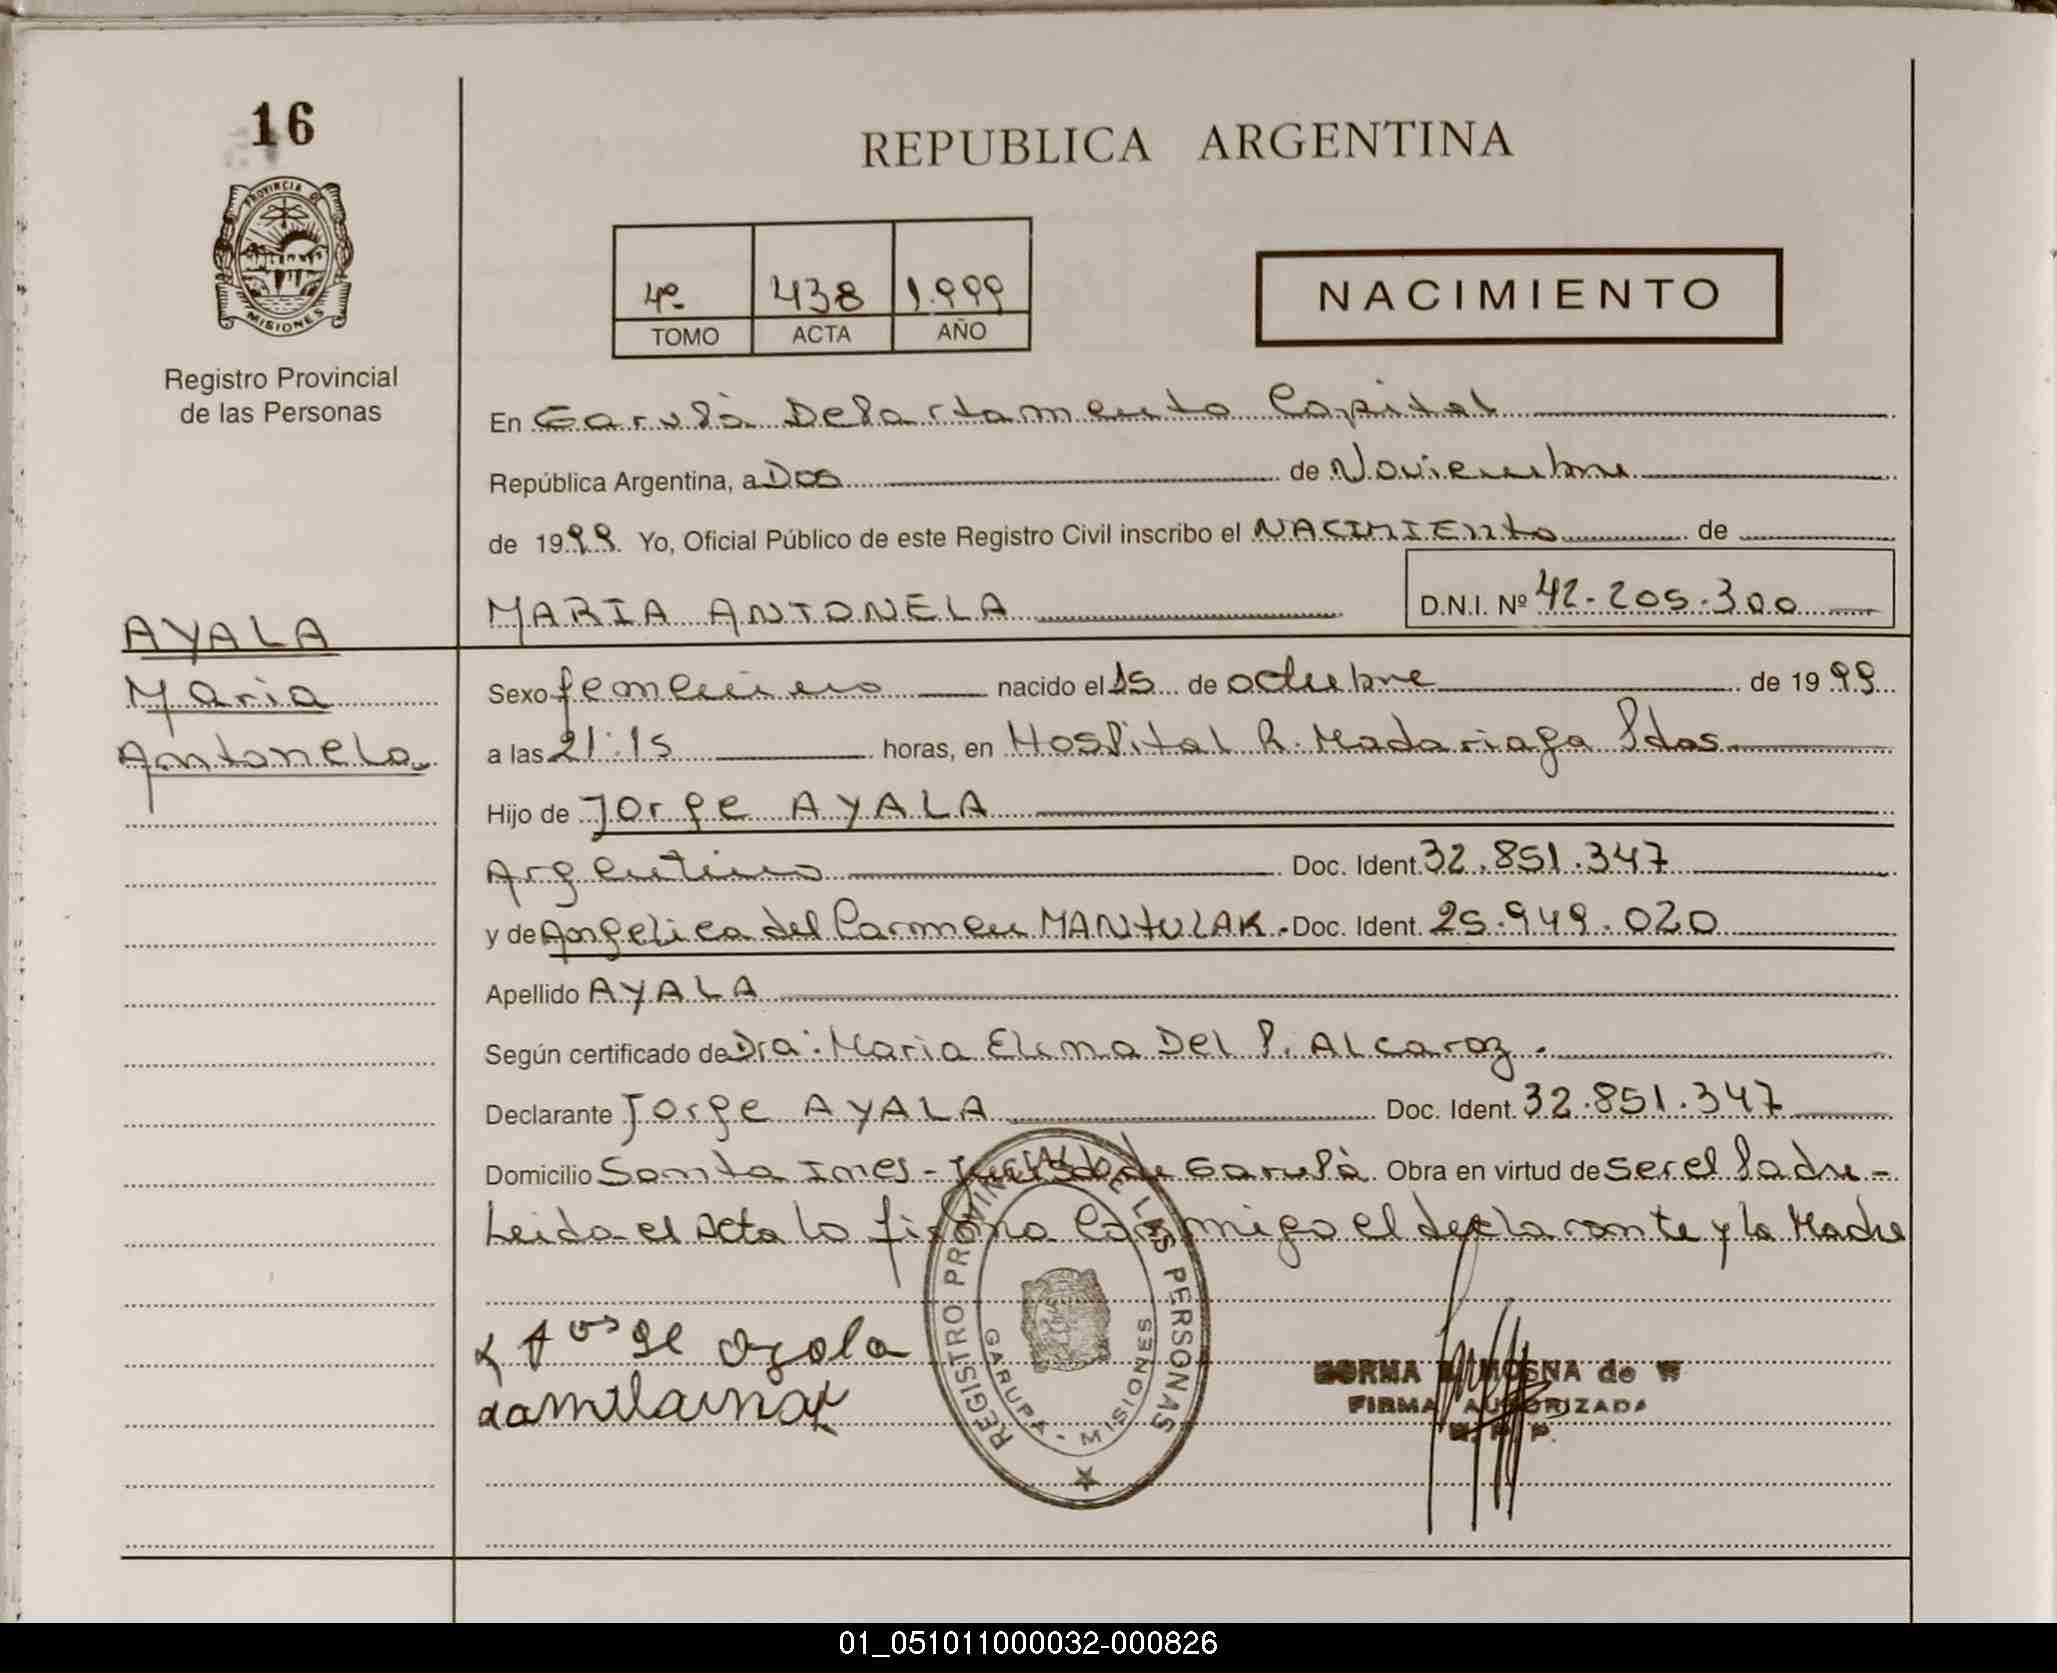 16
REPUBLICA ARGENTINA
PROVINCIA DE
MISIONES
Registro Provincial
de las Personas
4º 438 1.999
TOMO ACTA AÑO
NACIMIENTO
En Garupà Departamento Capital
República Argentina, a Dos de Noviembre
de 1999. Yo, Oficial Público de este Registro Civil inscribo el NACIMIENto de
MARIA ANTONELA D.N.I. Nº 42-205-300
AYALA
Maria
Antonela
Sexo femenino nacido el 15 de octubre de 1999
a las 21:15 horas, en Hospital R. Madariaga Pdas
Hijo de Jorge AYALA
Argentino Doc. Ident. 32.851.347
y de Angelica del Carmen MANTULAK. Doc. Ident. 25.949.020
Apellido AYALA
Según certificado de Dra: Maria Elena Del P. Alcaraz.
Declarante Jorge AYALA Doc. Ident. 32.851.347
Domicilio Santa Ines - Garupà. Obra en virtud de ser el Padre-
Leida el Acta la firma Conmigo el declarante y la Madre
REGISTRO PROVINCIAL DE LAS PERSONAS
GARUPA - MISIONES
MOSNA de W
FIRMA AUTORIZADA
01_051011000032-000826